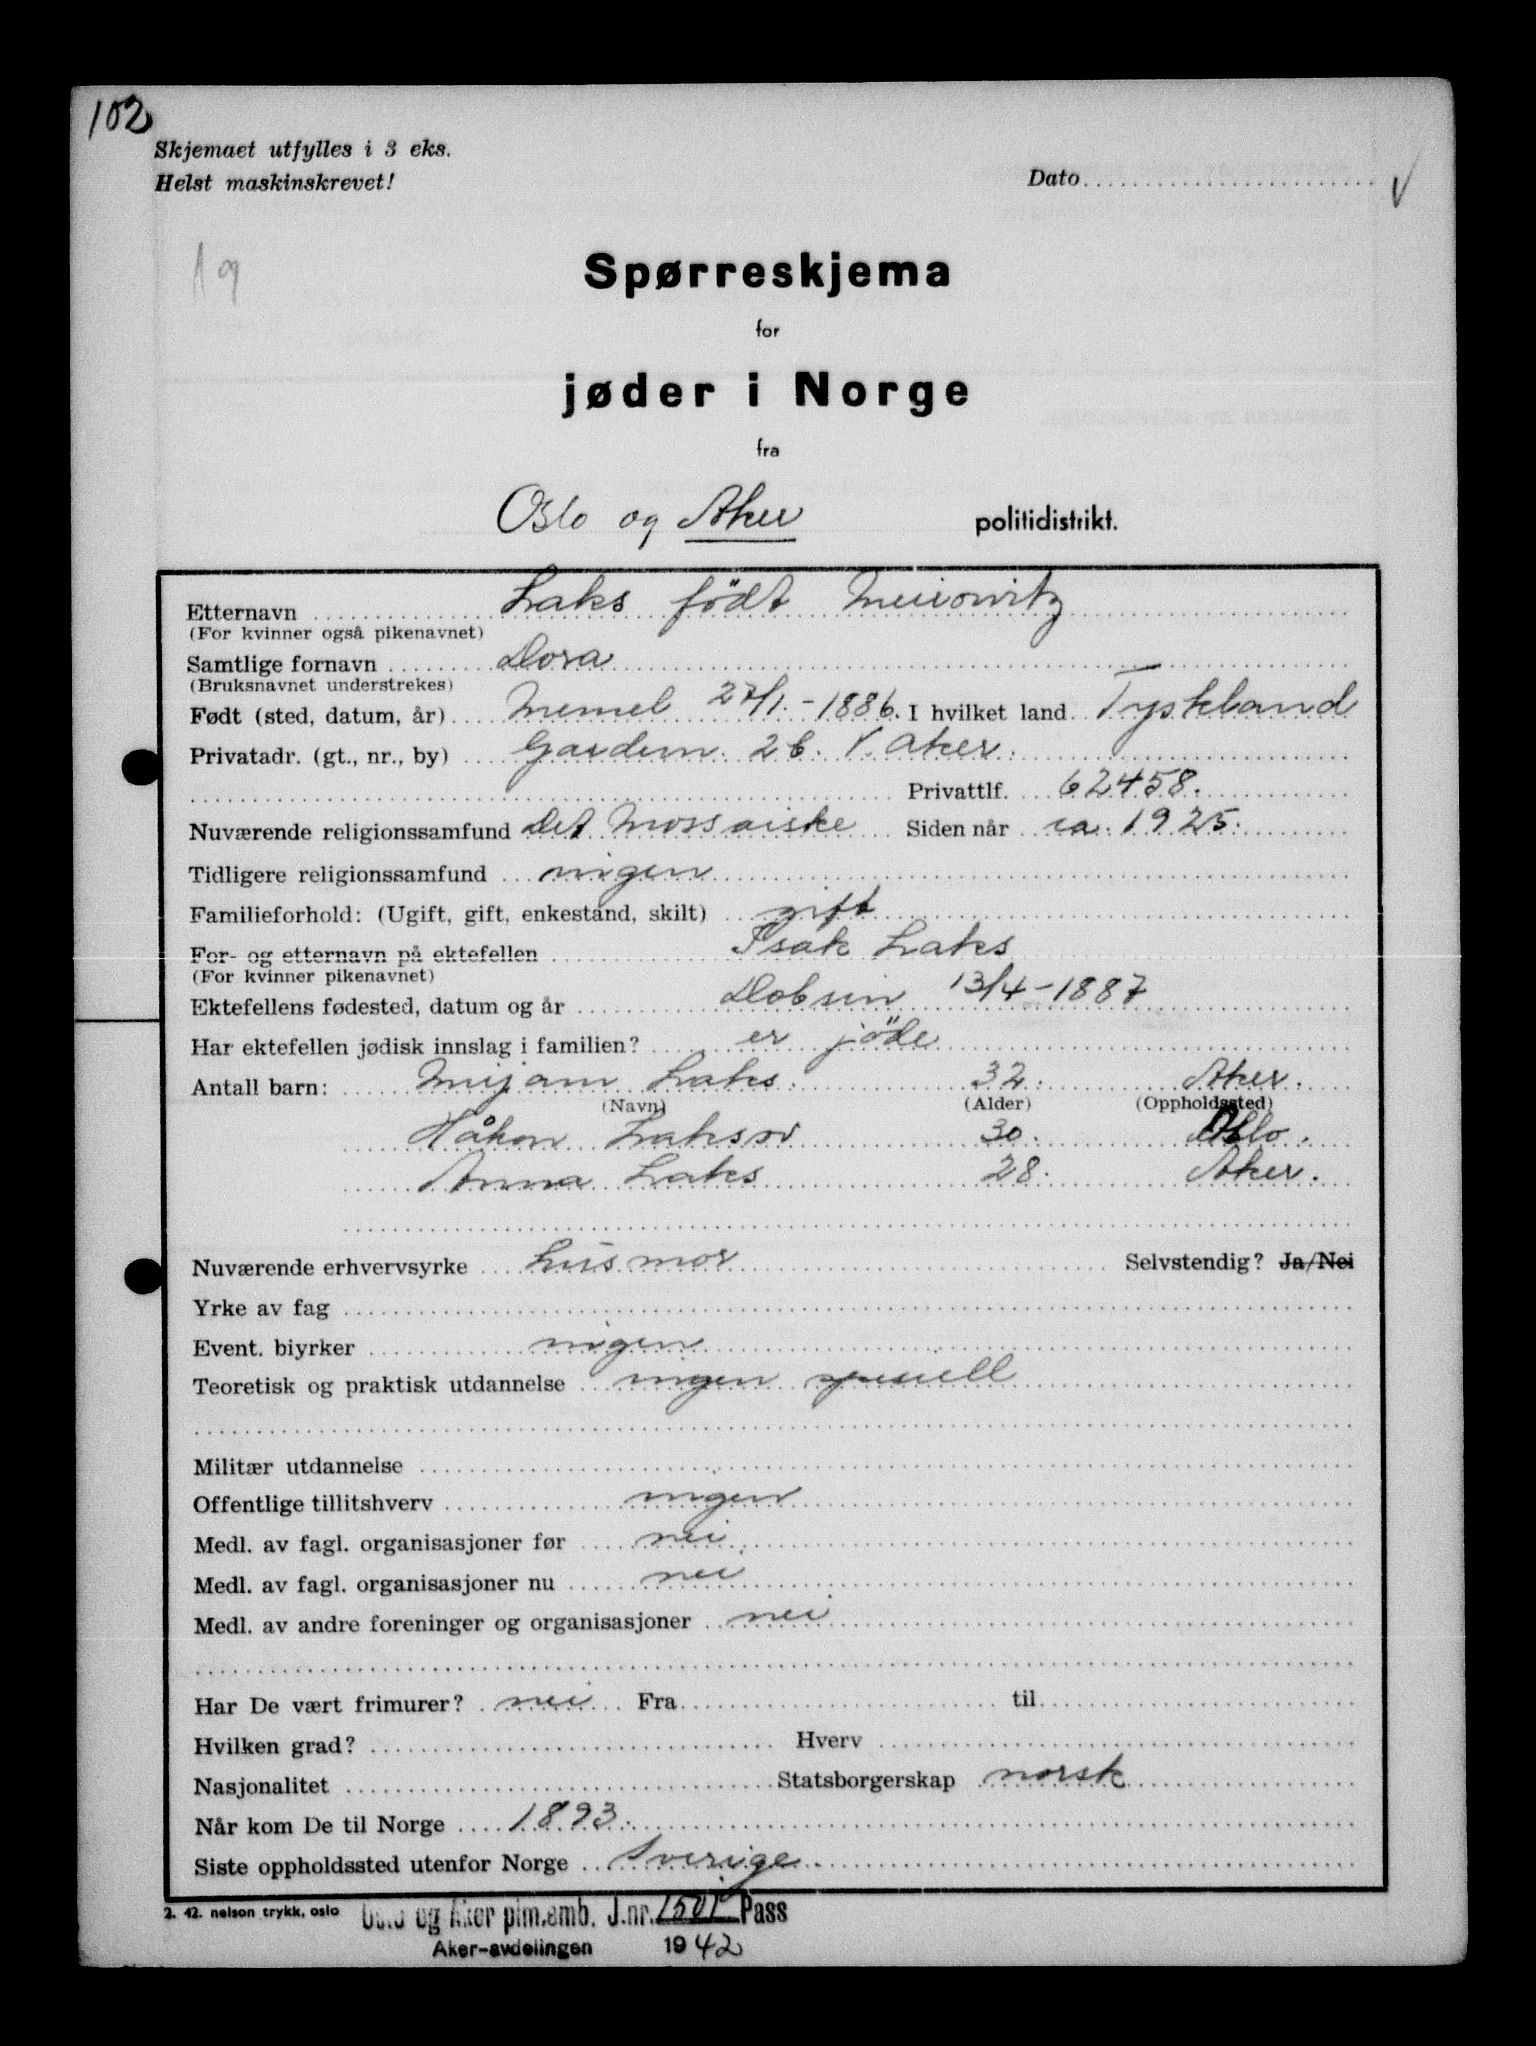 102
Skjemaet utfylles i 3 eks.
Helst maskinskrevet!
Dato
19
Spørreskjema
for
jøder i Norge
fra
Oslo og Aker politidistrikt.
Etternavn Laks født Meirowitz
(For kvinner også pikenavnet)
Samtlige fornavn Dora
(Bruksnavnet understrekes)
Født (sted, datum, år) Memel 27/1.-1886. I hvilket land Tyskland
Privatadr. (gt., nr., by) 2b. V. Aker.
Privattlf. 62458.
Nuværende religionssamfund Det Mossaiske Siden når ca. 1925.
Tidligere religionssamfund ingen
Familieforhold: (Ugift, gift, enkestand, skilt) gift
For- og etternavn på ektefellen Isak Laks
(For kvinner pikenavnet)
Ektefellens fødested, datum og år Dobsin 13/4-1887
Har ektefellen jødisk innslag i familien? er jøde
Antall barn: Mirjam Laks. 32. Aker.
(Navn) (Alder) (Oppholdssted)
Håkon Laksov 30. Oslo.
Anna Laks 28. Aker.
Nuværende erhvervsyrke husmor Selvstendig? Ja/Nei
Yrke av fag
Event. biyrker ingen
Teoretisk og praktisk utdannelse ingen spesiell
Militær utdannelse
Offentlige tillitshverv ingen
Medl. av fagl. organisasjoner før nei
Medl. av fagl. organisasjoner nu nei
Medl. av andre foreninger og organisasjoner nei
Har De vært frimurer? nei Fra til
Hvilken grad? Hverv
Nasjonalitet Statsborgerskap norsk
Når kom De til Norge 1893.
Siste oppholdssted utenfor Norge Sverige.
2. 42. nelson trykk, oslo Oslo og Aker plm.emb. J.nr. 1501 Pass
Aker-avdelingen 1942